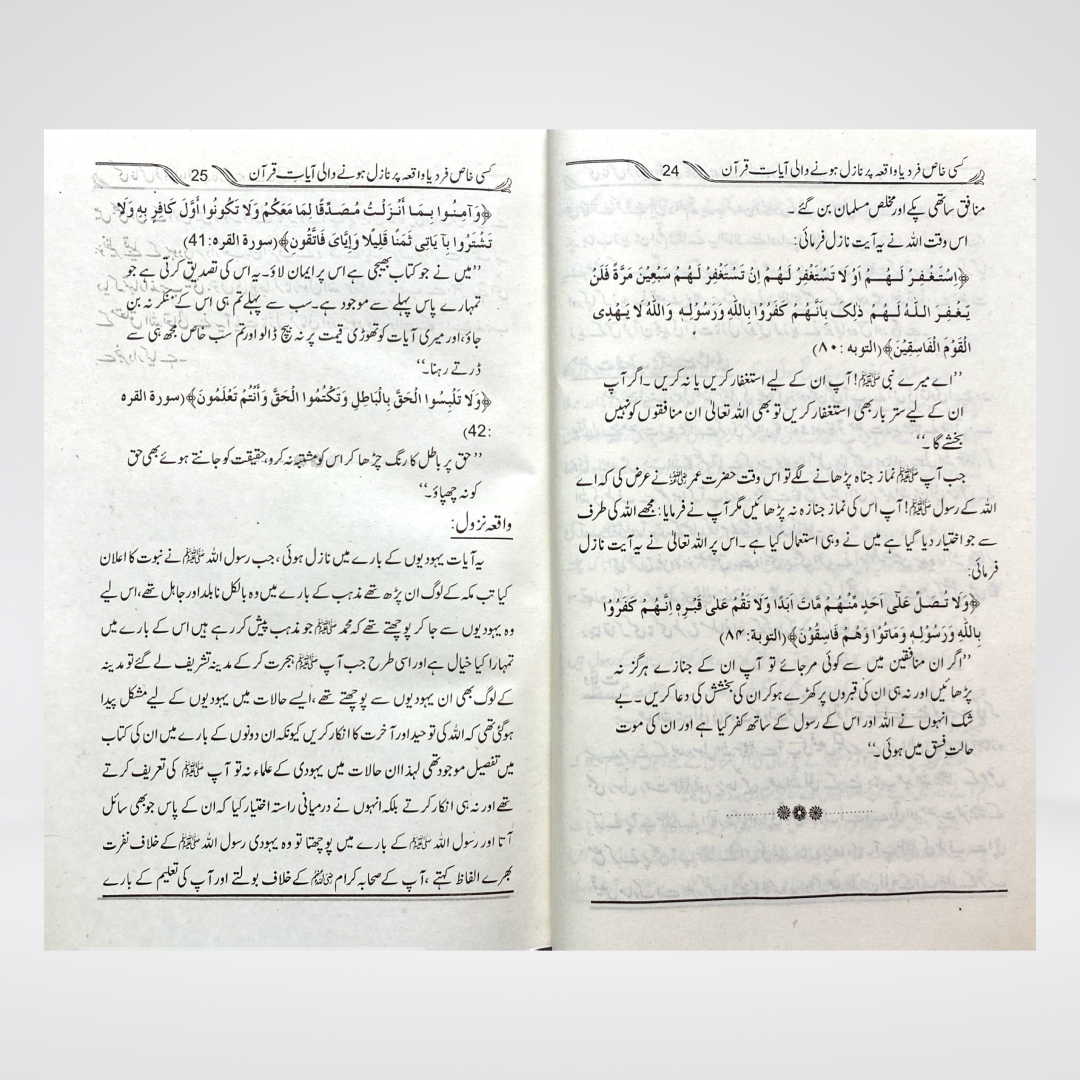 کسی خاص فرد یا واقعہ پر نازل ہونے والی آیات قرآن 24
منافق ساتھی پکے اور مخلص مسلمان بن گئے۔
اس وقت اللہ نے یہ آیت نازل فرمائی:
﴿اسْتَغْفِرْ لَهُمْ اَوْ لَا تَسْتَغْفِرْ لَهُمْ اِنْ تَسْتَغْفِرْ لَهُمْ سَبْعِيْنَ مَرَّةً فَلَنْ
يَغْفِرَ اللّٰهُ لَهُمْ ذٰلِكَ بِاَنَّهُمْ كَفَرُوْا بِاللّٰهِ وَرَسُوْلِهٖ وَاللّٰهُ لَا يَهْدِى
الْقَوْمَ الْفَاسِقِيْنَ﴾(التوبه :۸۰)
’’اے میرے نبی ﷺ! آپ ان کے لیے استغفار کریں یا نہ کریں۔ اگر آپ
ان کے لیے ستر بار بھی استغفار کریں تو بھی اللہ تعالیٰ ان منافقوں کو نہیں
بخشے گا۔‘‘
جب آپ ﷺ نماز جناہ پڑھانے لگے تو اس وقت حضرت عمر رضی اللہ عنہ نے عرض کی کہ اے
اللہ کے رسول ﷺ! آپ اس کی نماز جنازہ نہ پڑھائیں مگر آپ نے فرمایا: مجھے اللہ کی طرف
سے جو اختیار دیا گیا ہے میں نے وہی استعمال کیا ہے۔ اس پر اللہ تعالیٰ نے یہ آیت نازل
فرمائی:
﴿وَلَا تُصَلِّ عَلٰٓى اَحَدٍ مِّنْهُمْ مَّاتَ اَبَدًا وَلَا تَقُمْ عَلٰى قَبْرِهٖ اِنَّهُمْ كَفَرُوْا
بِاللّٰهِ وَرَسُوْلِهٖ وَمَاتُوْا وَهُمْ فَاسِقُوْنَ﴾(التوبة:۸۴)
’’اگر ان منافقین میں سے کوئی مر جائے تو آپ ان کے جنازے ہرگز نہ
پڑھائیں اور نہ ہی ان کی قبروں پر کھڑے ہو کر ان کی بخشش کی دعا کریں۔ بے
شک انہوں نے اللہ اور اس کے رسول کے ساتھ کفر کیا ہے اور ان کی موت
حالت فسق میں ہوئی۔‘‘
کسی خاص فرد یا واقعہ پر نازل ہونے والی آیات قرآن 25
﴿وَآمِنُوا بِمَا أَنْزَلْتُ مُصَدِّقًا لِمَا مَعَكُمْ وَلَا تَكُونُوا أَوَّلَ كَافِرٍ بِهِ وَلَا
تَشْتَرُوا بِآيَاتِي ثَمَنًا قَلِيلًا وَإِيَّايَ فَاتَّقُونِ﴾(سورة القره:41)
’’میں نے جو کتاب بھیجی ہے اس پر ایمان لاؤ۔ یہ اس کی تصدیق کرتی ہے جو
تمہارے پاس پہلے سے موجود ہے۔ سب سے پہلے تم ہی اس کے منکر نہ بن
جاؤ، اور میری آیات کو تھوڑی قیمت پر نہ بیچ ڈالو اور تم سب خاص مجھ ہی سے
ڈرتے رہنا۔‘‘
﴿وَلَا تَلْبِسُوا الْحَقَّ بِالْبَاطِلِ وَتَكْتُمُوا الْحَقَّ وَأَنْتُمْ تَعْلَمُونَ﴾(سورة القره
:42)
’’حق پر باطل کا رنگ چڑھا کر اس کو مشتبہ نہ کرو، حقیقت کو جانتے ہوئے بھی حق
کو نہ چھپاؤ۔‘‘
واقعہ نزول:
یہ آیات یہودیوں کے بارے میں نازل ہوئی، جب رسول اللہ ﷺ نے نبوت کا اعلان
کیا تب مکہ کے لوگ ان پڑھ تھے مذہب کے بارے میں وہ بالکل نابلد اور جاہل تھے، اس لیے
وہ یہودیوں سے جا کر پوچھتے تھے کہ محمد ﷺ جو مذہب پیش کر رہے ہیں اس کے بارے میں
تمہارا کیا خیال ہے اور اسی طرح جب آپ ﷺ ہجرت کر کے مدینہ تشریف لے گئے تو مدینہ
کے لوگ بھی ان یہودیوں سے پوچھتے تھے، ایسے حالات میں یہودیوں کے لیے مشکل پیدا
ہوگئی تھی کہ اللہ کی توحید اور آخرت کا انکار کریں کیونکہ ان دونوں کے بارے میں ان کی کتاب
میں تفصیل موجود تھی لہذا ان حالات میں یہودی کے علماء نہ تو آپ ﷺ کی تعریف کرتے
تھے اور نہ ہی انکار کرتے بلکہ انہوں نے درمیانی راستہ اختیار کیا کہ ان کے پاس جو بھی سائل
آتا اور رسول اللہ ﷺ کے بارے میں پوچھتا تو وہ یہودی رسول اللہ ﷺ کے خلاف نفرت
بھرے الفاظ کہتے، آپ کے صحابہ کرام رضی اللہ عنہم کے خلاف بولتے اور آپ کی تعلیم کے بارے